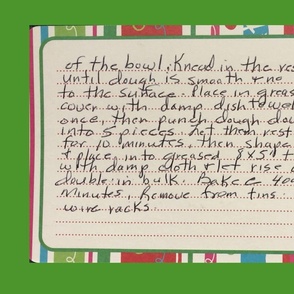 of the bowl. Knead in the res
until dough is smooth + no
to the surface. Place in greas
cover with damp dish towel
once, then punch dough dow
into 5 pieces. Let them rest
for 10 minutes, then shape
+ place into greased 8x5x
with damp cloth + let rise
double in bulk. Bake @ 400
minutes, Remove from tins
wire racks